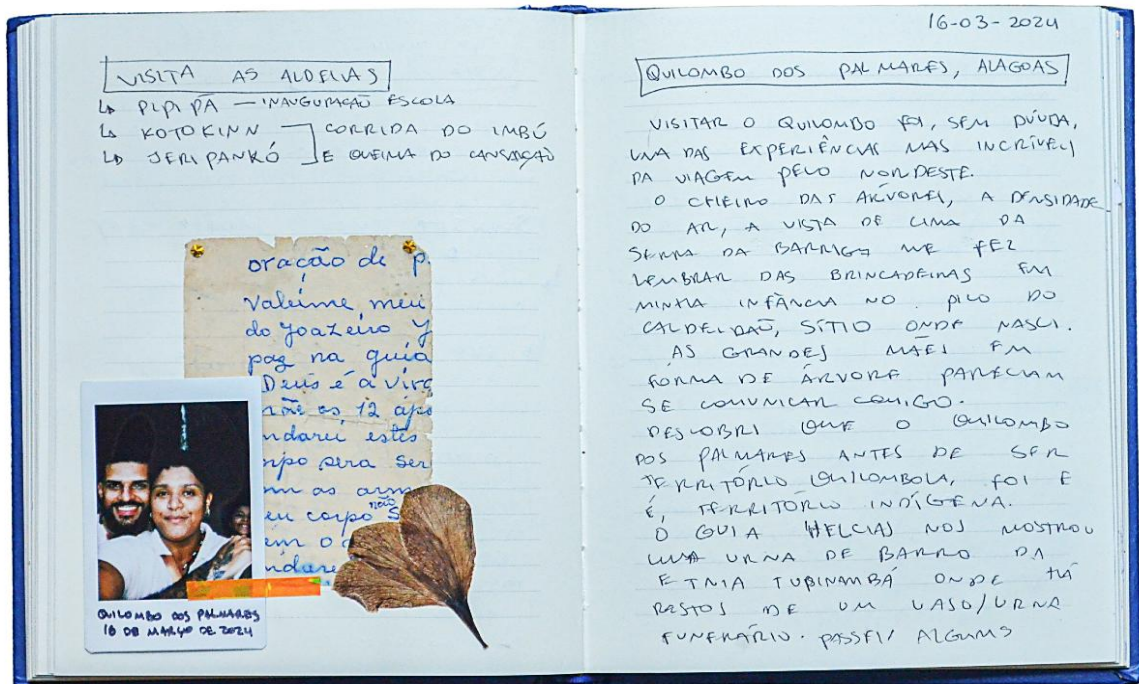 VISITA AS ALDEIAS
↳ PIPIPÃ — INAUGURAÇÃO ESCOLA
↳ KOTOKINN
CORRIDA DO IMBÚ
↳ JERIPANKÓ
E QUEIMA DO CANSANÇÃO
oração de p.
Valeime meu
do Joazeiro
paz na guia
Deus é a virg
mãe os 12 ápo
ndarei estes
rpo sera ser
om as arm
eu corpo não S
em o
ndare
QUILOMBO DOS PALMARES
16 DE MARÇO DE 2024
16-03-2024
QUILOMBO DOS PALMARES, ALAGOAS
VISITAR O QUILOMBO FOI, SEM DÚVDA,
UMA DAS EXPERIÊNCIAS MAS INCRÍVEIS
DA VIAGEM PELO NORDESTE.
O CHEIRO DAS ÁRVORES, A DENSIDADE
DO AR, A VISTA DE CIMA DA
SERRA DA BARRIGA ME FEZ
LEMBRAR DAS BRINCADEIRAS EM
MINHA INFÂNCIA NO PICO DO
CALDEIDAÕ, SÍTIO ONDE NASCI.
AS GRANDES MÃES EM
FORMA DE ÁRVORE PARECIAM
SE COMUNICAR COMIGO.
DESCOBRI QUE O QUILOMBO
DOS PALMARES ANTES DE SER
TERRITÓRIO QUILOMBOLA, FOI E
É, TERRITÓRIO INDÍGENA.
O GUIA HELCIAS NOS MOSTROU
UMA URNA DE BARRO DA
ETNIA TUPINAMBÁ ONDE HÁ
RESTOS DE UM VASO/URNA
FUNERÁRIO. PASSEI ALGUMS